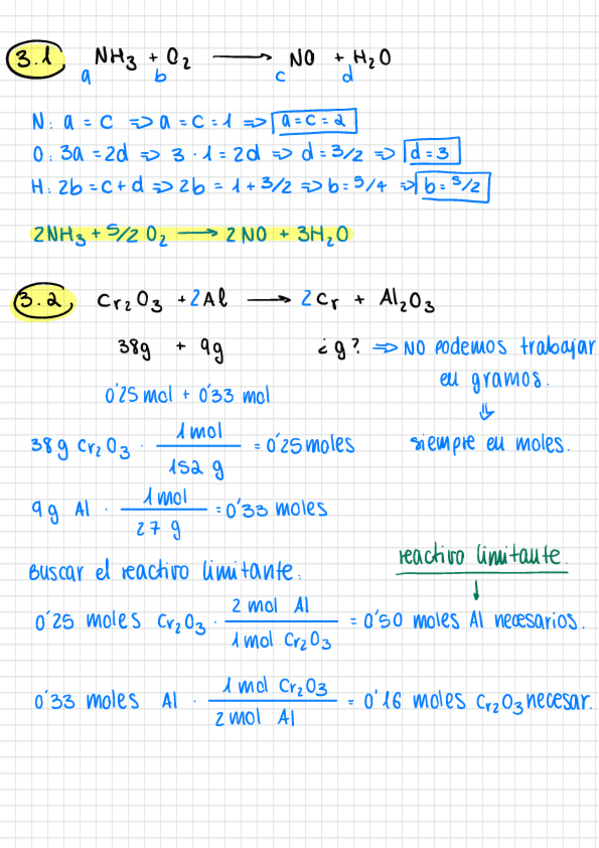 3.1 NH3 + O2 → NO + H2O
a b c d
N: a = c => a = c = 1 => a = c = 2
O: 3a = 2d => 3 · 1 = 2d => d = 3/2 => d = 3
H: 2b = c + d => 2b = 1 + 3/2 => b = 5/4 => b = 5/2
2NH3 + 5/2 O2 → 2 NO + 3H2O
3.2 Cr2O3 + 2Al → 2 Cr + Al2O3
38g + 9g ¿g? => NO podemos trabajar
en gramos.
0'25 mol + 0'33 mol
⇓
38g Cr2O3 · 1 mol / 152 g = 0'25 moles
siempre en moles.
9g Al · 1 mol / 27 g = 0'33 moles
Buscar el reactivo limitante:
reactivo limitante.
↓
0'25 moles Cr2O3 · 2 mol Al / 1 mol Cr2O3 = 0'50 moles Al necesarios.
0'33 moles Al · 1 mol Cr2O3 / 2 mol Al = 0'16 moles Cr2O3 necesar.